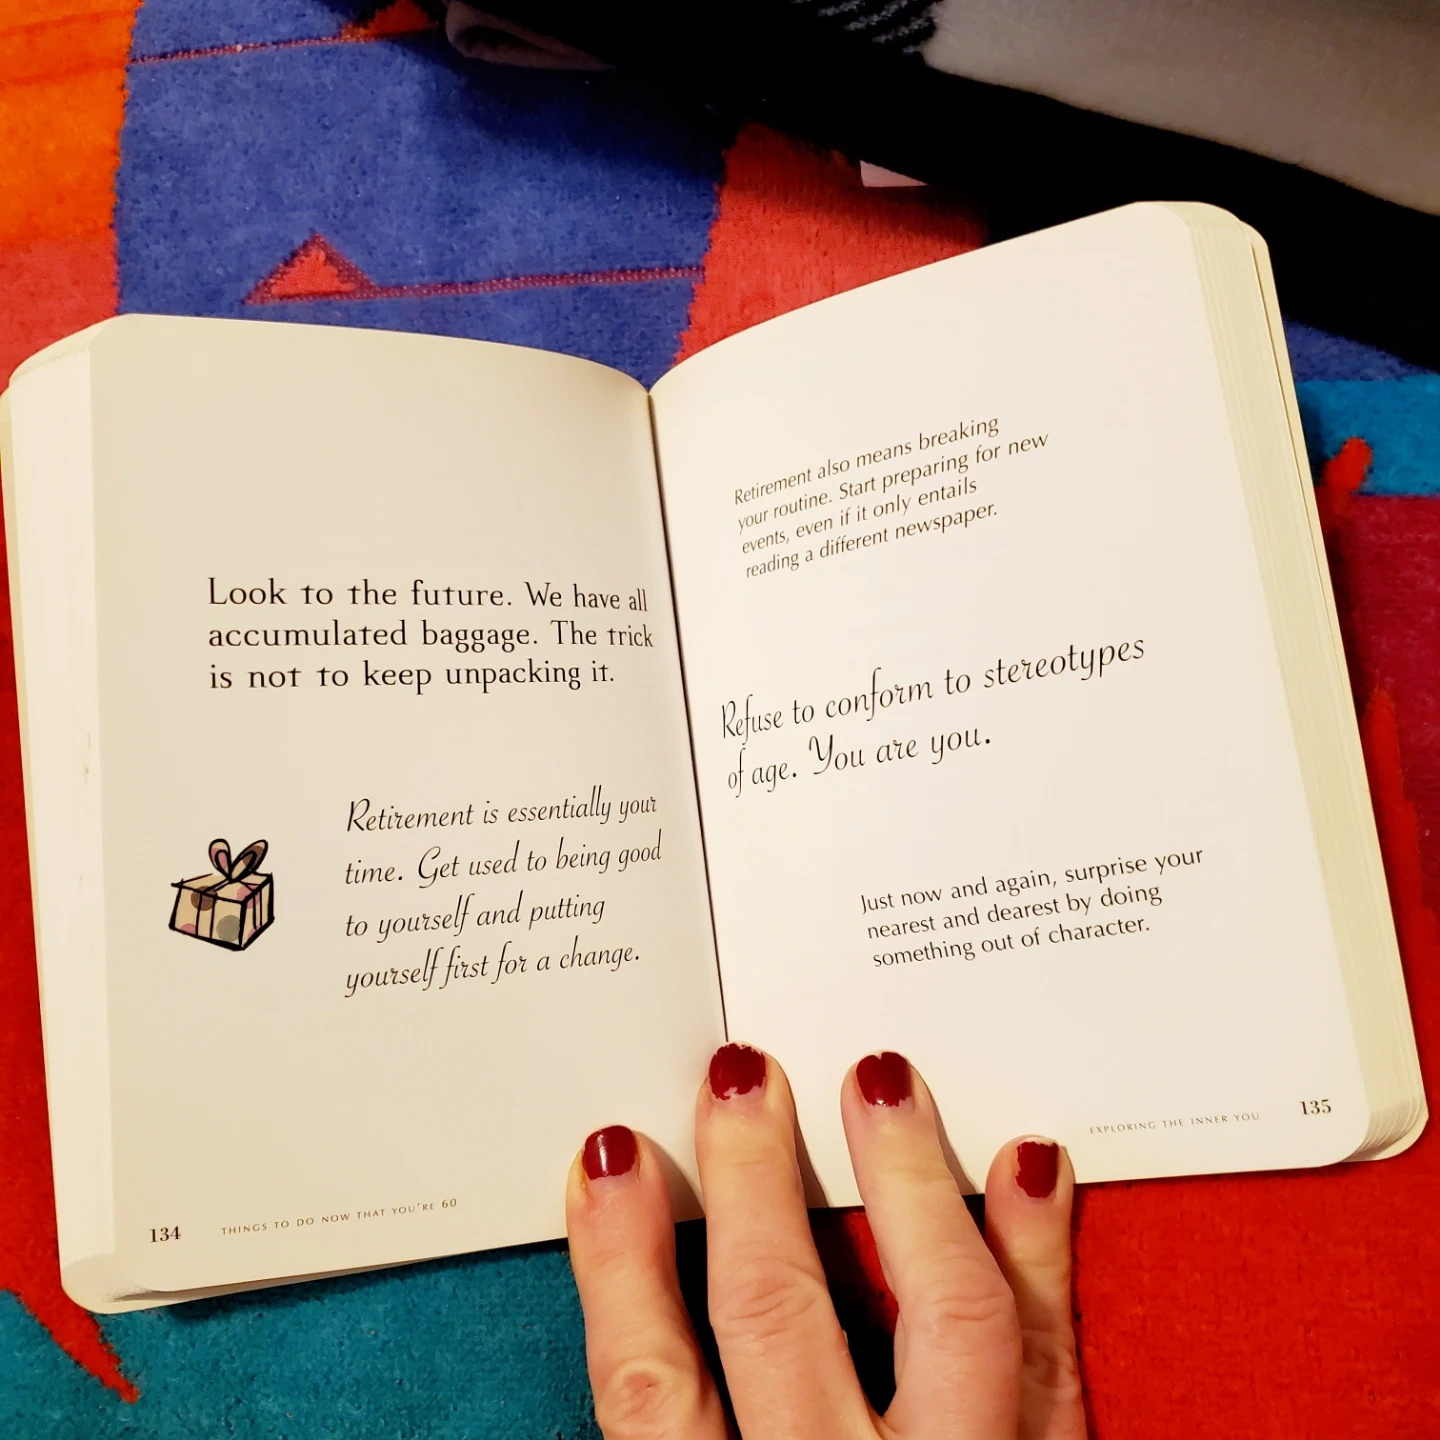 Look to the future. We have all
accumulated baggage. The trick
is not to keep unpacking it.
Retirement is essentially your
time. Get used to being good
to yourself and putting
yourself first for a change.
134 THINGS TO DO NOW THAT YOU'RE 60
Retirement also means breaking
your routine. Start preparing for new
events, even if it only entails
reading a different newspaper.
Refuse to conform to stereotypes
of age. You are you.
Just now and again, surprise your
nearest and dearest by doing
something out of character.
EXPLORING THE INNER YOU 135